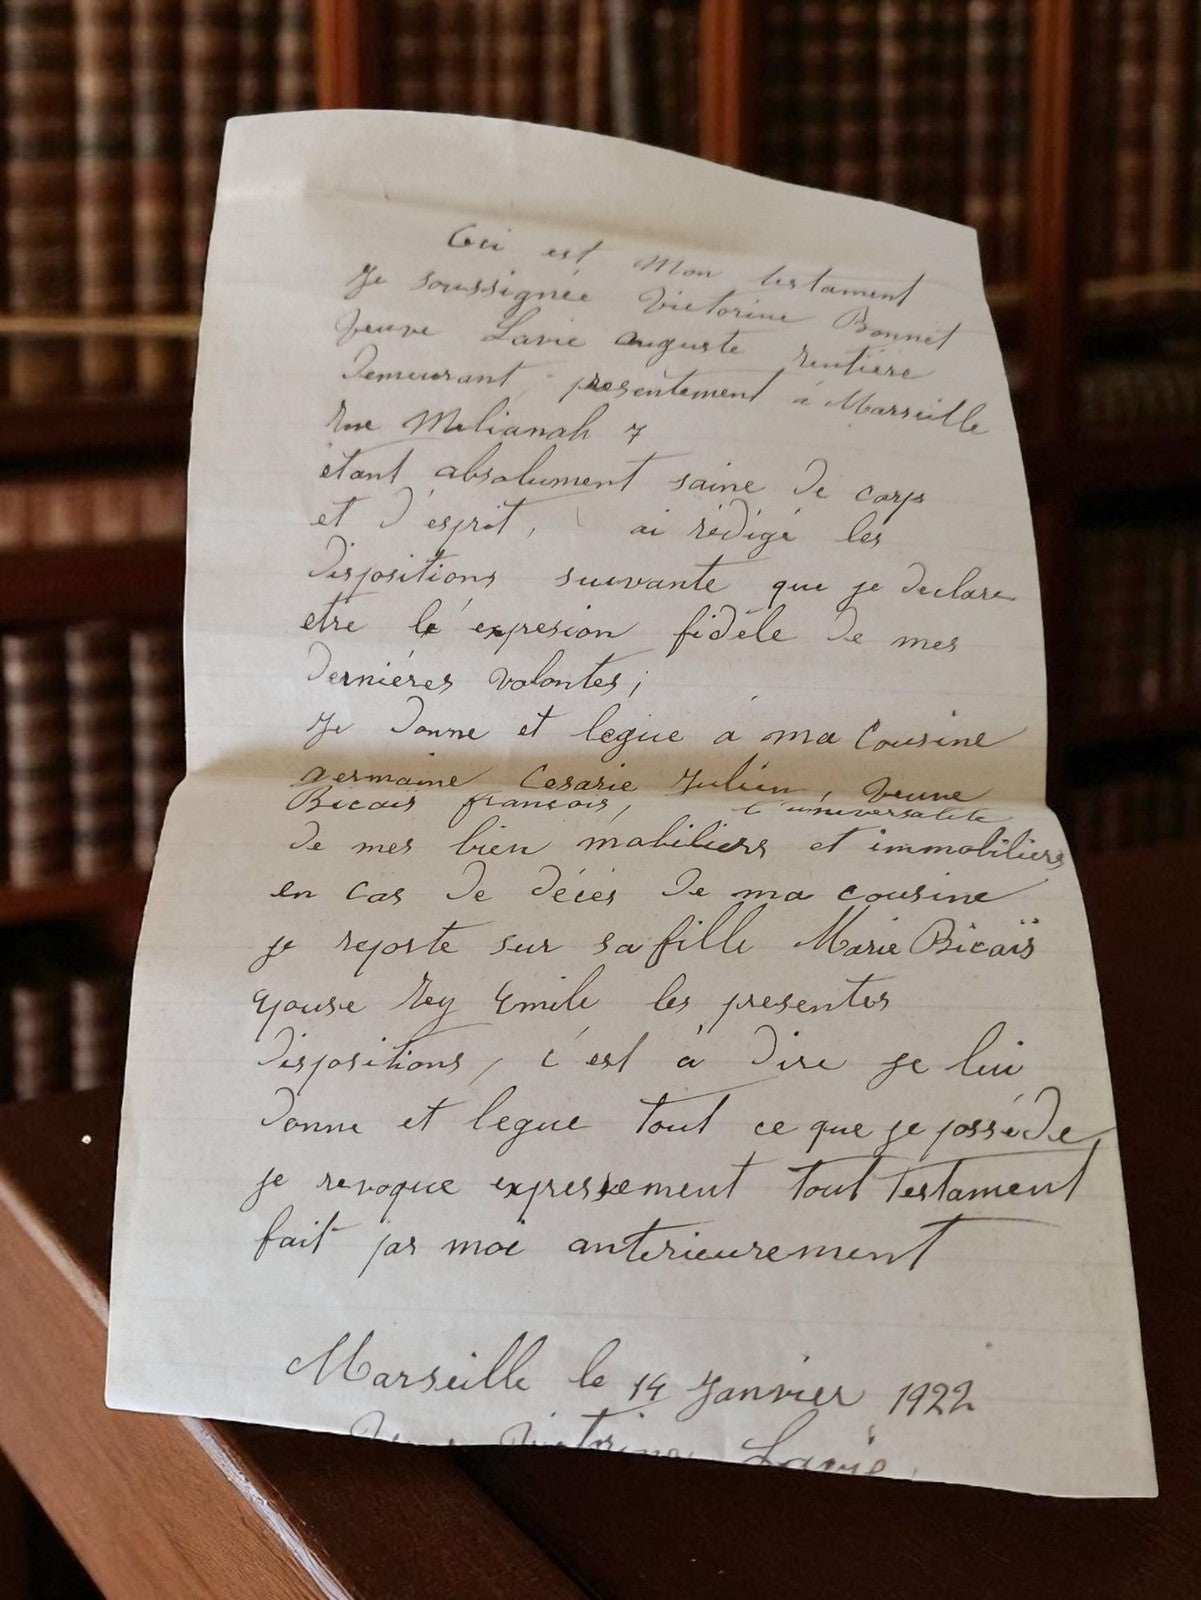 Ceci est Mon testament
Je soussignée Victorine Bonnet
Veuve Lavie auguste rentière
Demeurant presentement à Marseille
Rue Milianah 7
étant absolument saine de corps
et d'esprit, ai rédigé les
Dispositions suivante que je declare
etre le expresion fidéle de mes
derniéres volontes;
Je donne et legue à ma Cousine
germaine Cesarie Julien, Veuve
Bicais françois, l'universalite
de mes bien mobiliers et immobiliers
en cas de décés de ma cousine
je reporte sur sa fille Marie Bicaïs
epouse Rey Emile les presentes
dispositions, c'est à dire je lui
donne et legue tout ce que je posséde,
je revoque expressement tout testament
fait par moi anterieurement
Marseille le 14 Janvier 1922
Veuve Victorine Lavie